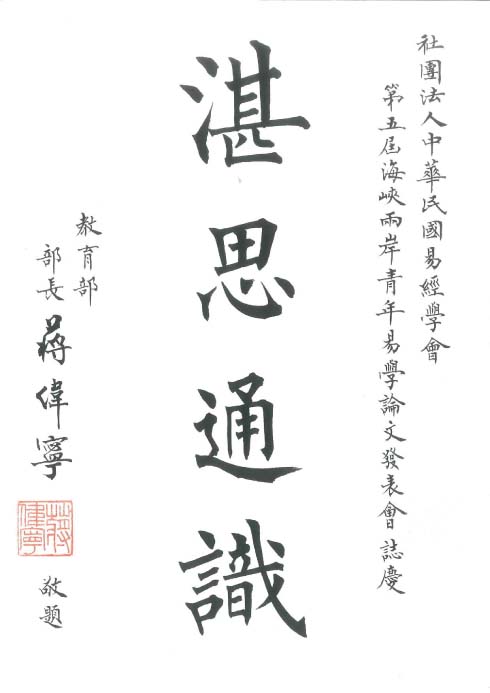 社團法人中華民國易經學會
第五屆海峽兩岸青年易學論文發表會 誌慶
湛思通識
教育部
部長 蔣偉寧
蔣偉寧
敬題